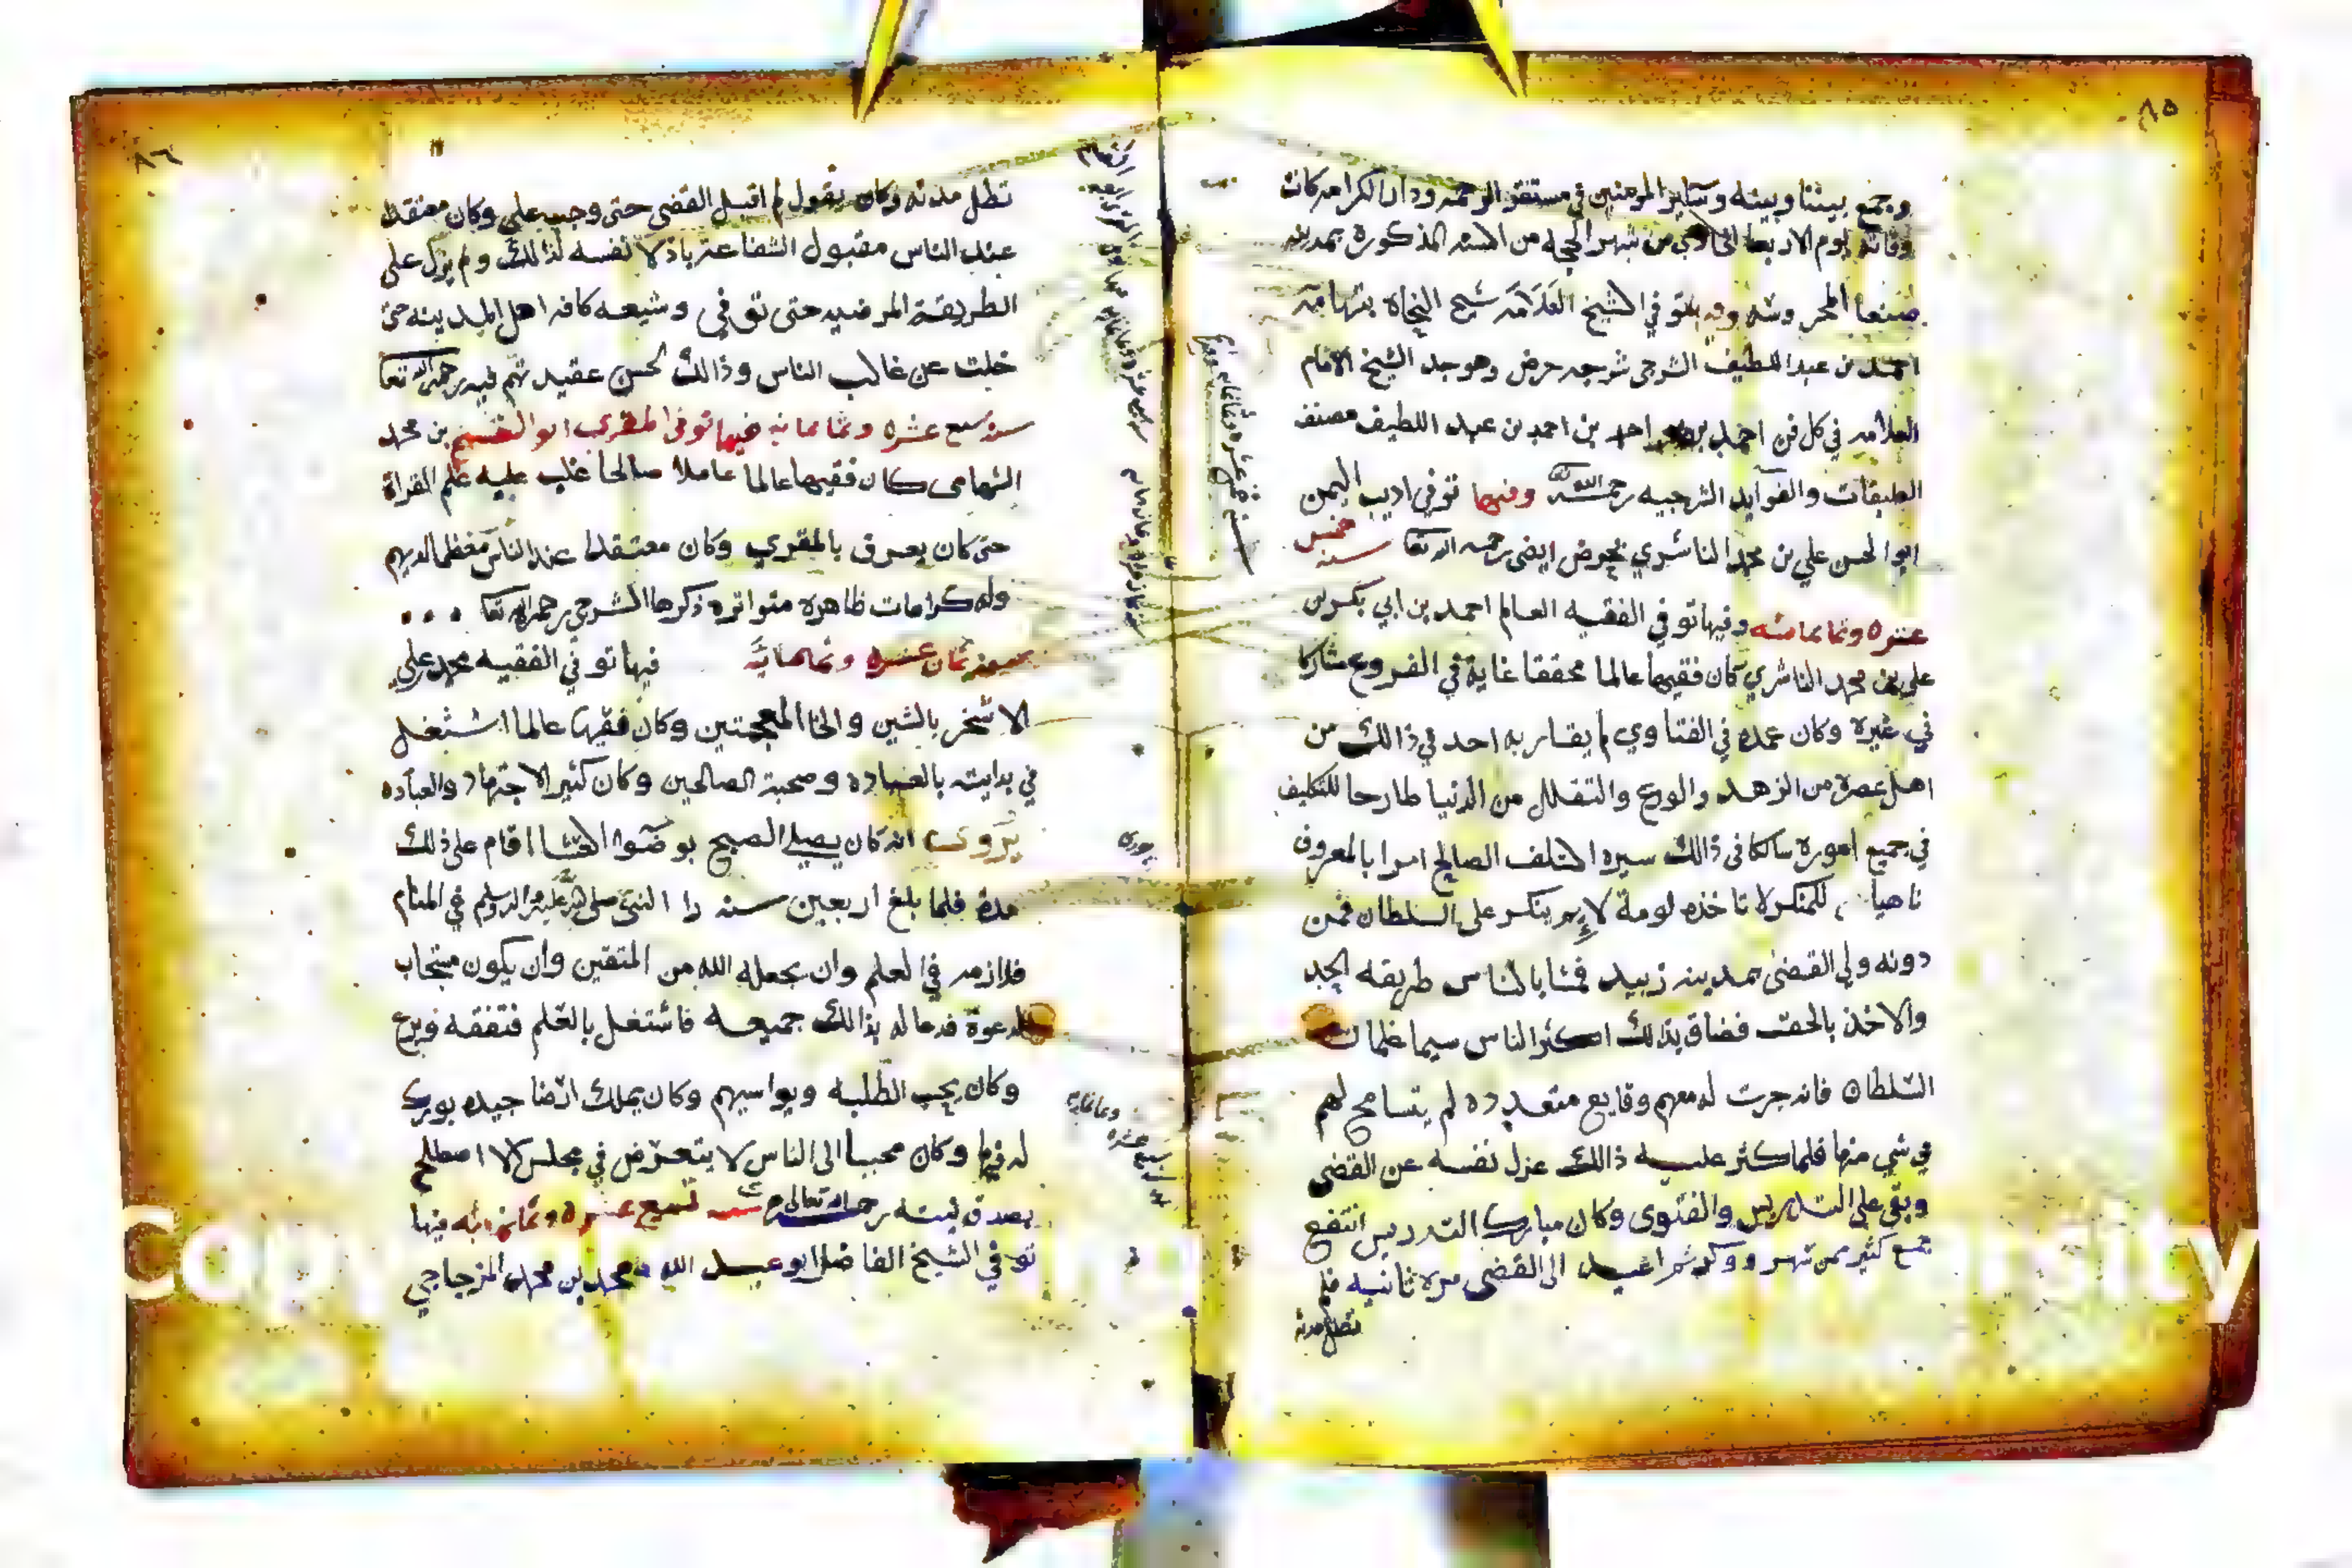 ٨٥
وجمع بيننا وبينه وساير المومنين في مستقر الرحمه ودار الكرامه كانت
وفاته يوم الاربعا من شهر الحجه من السنه المذكورة بمدينه
صنعا المحروسه وفيها توفي الشيخ العلامه شيخ النحاة بتهامه
احمد بن عبد اللطيف الشرجي شرجه حرض وهو جد الشيخ الامام
العلامه في كل فن احمد بن احمد بن احمد بن عبد اللطيف مصنف
الطبقات والفوايد الشرجيه رحمه الله وفيها توفي اديب اليمن
ابو الحسن علي بن محمد الناشري بحرض ايضى رحمه الله تعا سنه خمس
عشره وثمانمائه وفيها توفي الفقيه العالم احمد بن ابي بكر بن
علي بن محمد الناشري كان فقيها عالما محققا غاية في الفروع مشاركا
في غيره وكان عمده في الفتاوي لم يقاربه احد في ذالك من
اهل عصره من الزهد والورع والتقلل من الدنيا طارحا للتكليف
في جميع اموره سالكا في ذالك سيره السلف الصالح امرا بالمعروف
ناهيا للمنكر لا تاخذه لومة لايم ينكر على السلطان فمن
دونه ولي القضى بمدينه زبيد فمشا بالناس طريقه الجد
والاخذ بالحق فضاق بذالك اكثر الناس سيما غلمان
السلطان فانه جرت له معهم وقايع متعدده لم يتسامح لهم
في شي منها فلما كثر عليه ذالك عزل نفسه عن القضى
وبقي على التدريس والفتوى وكان مبارك التدريس انتفع
جمع كثير ممن شهر وذكر ثم اعيد الى القضى مره ثانيه فلم
تطل مدته
سنة خمس عشره وثمانمايه
٨٦
تطل مدته وكان يقول لم اقبل القضى حتى وجب علي وكان معتقدا
عند الناس مقبول الشفاعه باذلا نفسه لذالك ولم يزل على
الطريقة المرضيه حتى توفي وشيعه كافه اهل المدينه حتى
خلت عن غالب الناس وذالك لحسن عقيدتهم فيه رحمه الله تعا
سنه سبع عشره وثمانمائه فيها توفي المقري ابو القسم بن محمد
التهامي كان فقيها عالما عاملا صالحا غلب عليه علم القراة
حتى كان يعرف بالمقري وكان معتقدا عند الناس معظما لديهم
وله كرامات ظاهره متواتره ذكرها الشرجي رحمه الله تعا
سنه ثمان عشره وثمانمايه فيها توفي الفقيه محمد علي
الاشخر بالشين والخا المعجمتين وكان فقيها عالما اشتغل
في بدايته بالعباده وصحبة الصالحين وكان كثير الاجتهاد والعباده
يروى انه كان يصلي الصبح بوضوا العشا اقام على ذلك
مدة فلما بلغ اربعين سنه را النبي صلى الله عليه واله وسلم في المنام
فلازمه في العلم وان يجعله الله من المتقين وان يكون مستجاب
الدعوة فدعا له بذالك جميعه فاشتغل بالعلم فتفقه وبرع
وكان يحب الطلبه ويواسيهم وكان يملك ارضا جيده بورك
له فيها وكان محببا الى الناس لا يتعرض في مجلس الا اصطلح
بصدق نيته رحمه الله تعالى سنه تسع عشره وثمانمائه فيها
توفي الشيخ الفاضل ابو عبد الله محمد بن محمد المزجاجي